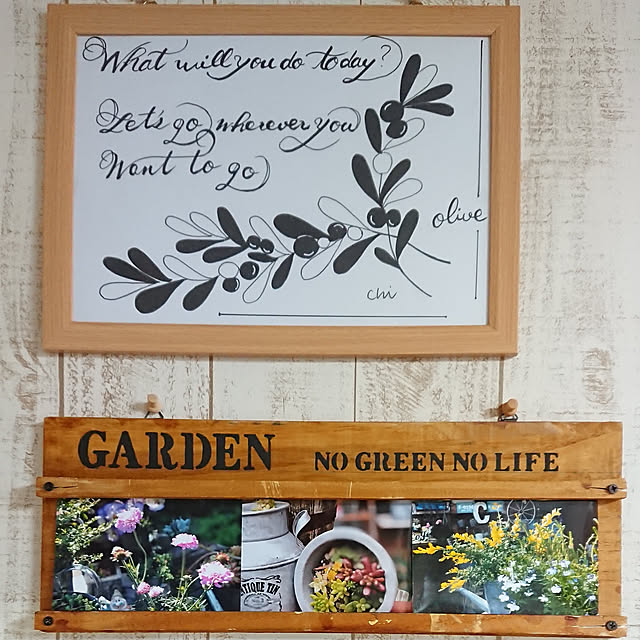 What will you do today?
Let's go wherever you
Want to go
olive
chi
GARDEN NO GREEN NO LIFE
C
TIQUE TIN